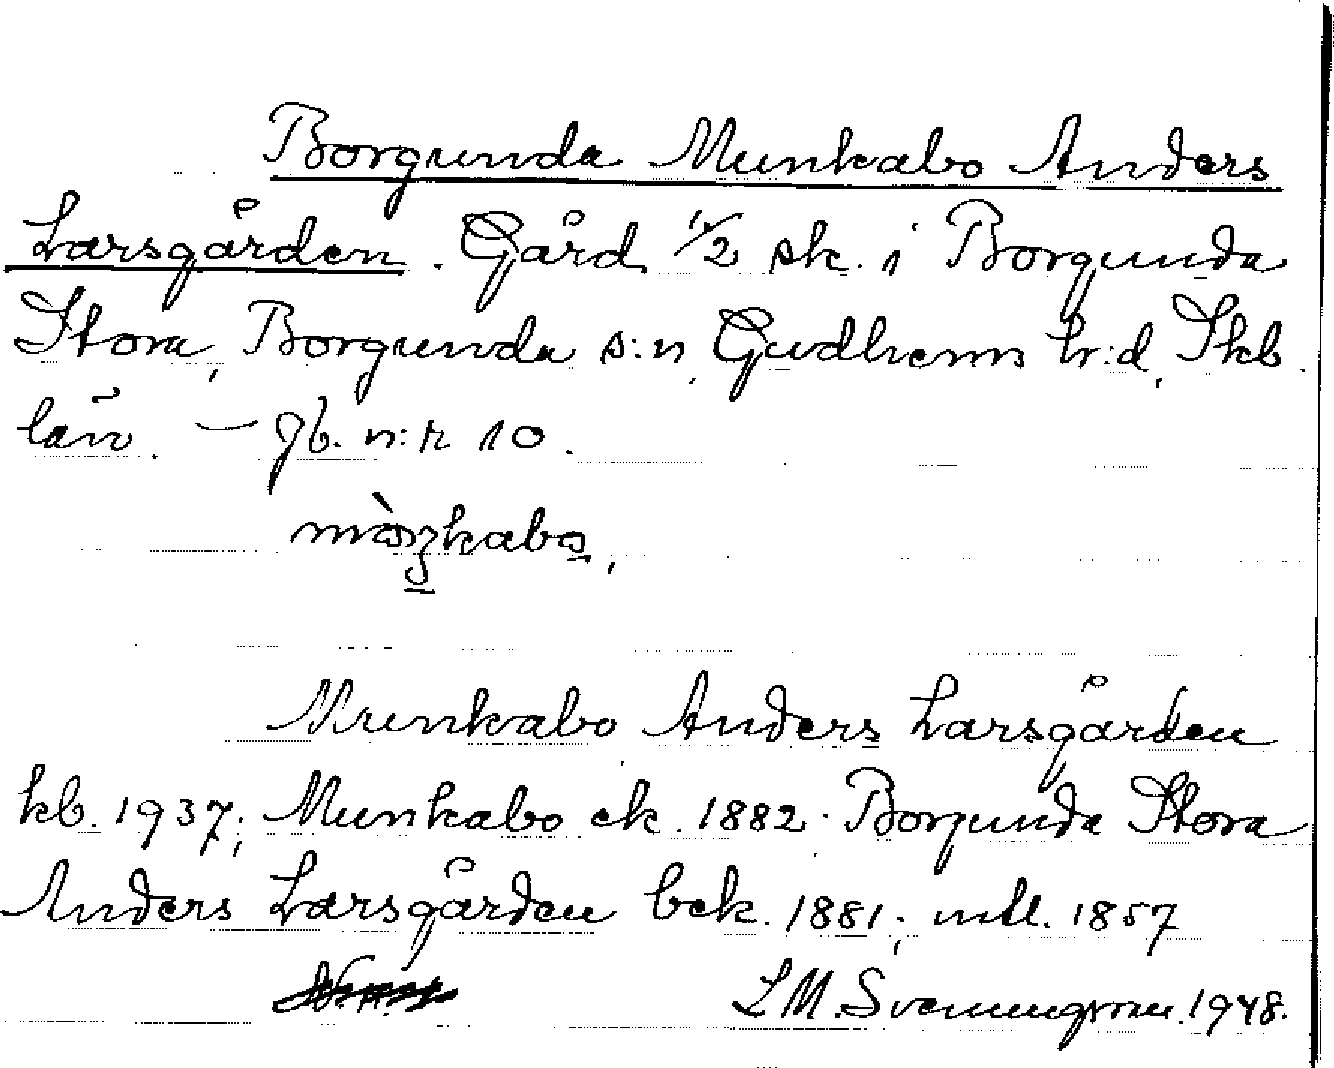 Borgunda Munkabo Anders
Larsgården. Gård 1/2 sk. i Borgunda
Stora, Borgunda s:n, Gudhems hr:d, Skb.
län. — Jb. n:r 10.
mòŋkabo,
Munkabo Anders Larsgården
kb. 1937; Munkabo ek. 1882. Borgunda Stora
Anders Larsgården bek. 1881; mtl. 1857
L M. Svenungsson. 1948.